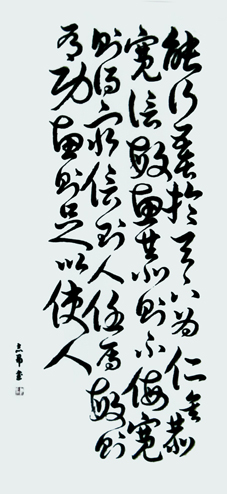 能行五者於天下為仁矣恭
寬信敏惠恭則不侮寬
則得眾信則人任焉敏則
有功惠則足以使人